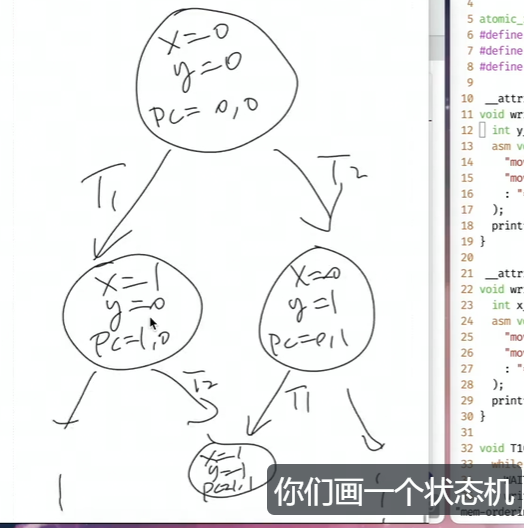 x=0
y=0
PC= 0,0
T1
T2
x=1
y=0
PC=1,0
x=0
y=1
PC=0,1
T2
T1
x=1
y=1
PC=1,1
你们画一个状态机
4
5 atomic_
6 #define
7 #define
8 #define
9
10 __attri
11 void wr
12 int y_
13 asm vo
14 "mo
15 "mo
16 : "
17 );
18 print
19 }
20
21 __attri
22 void wr
23 int x_
24 asm vo
25 "mo
26 "mo
27 : "
28 );
29 print
30 }
31
32 void T1
33 while
"mem-orderin